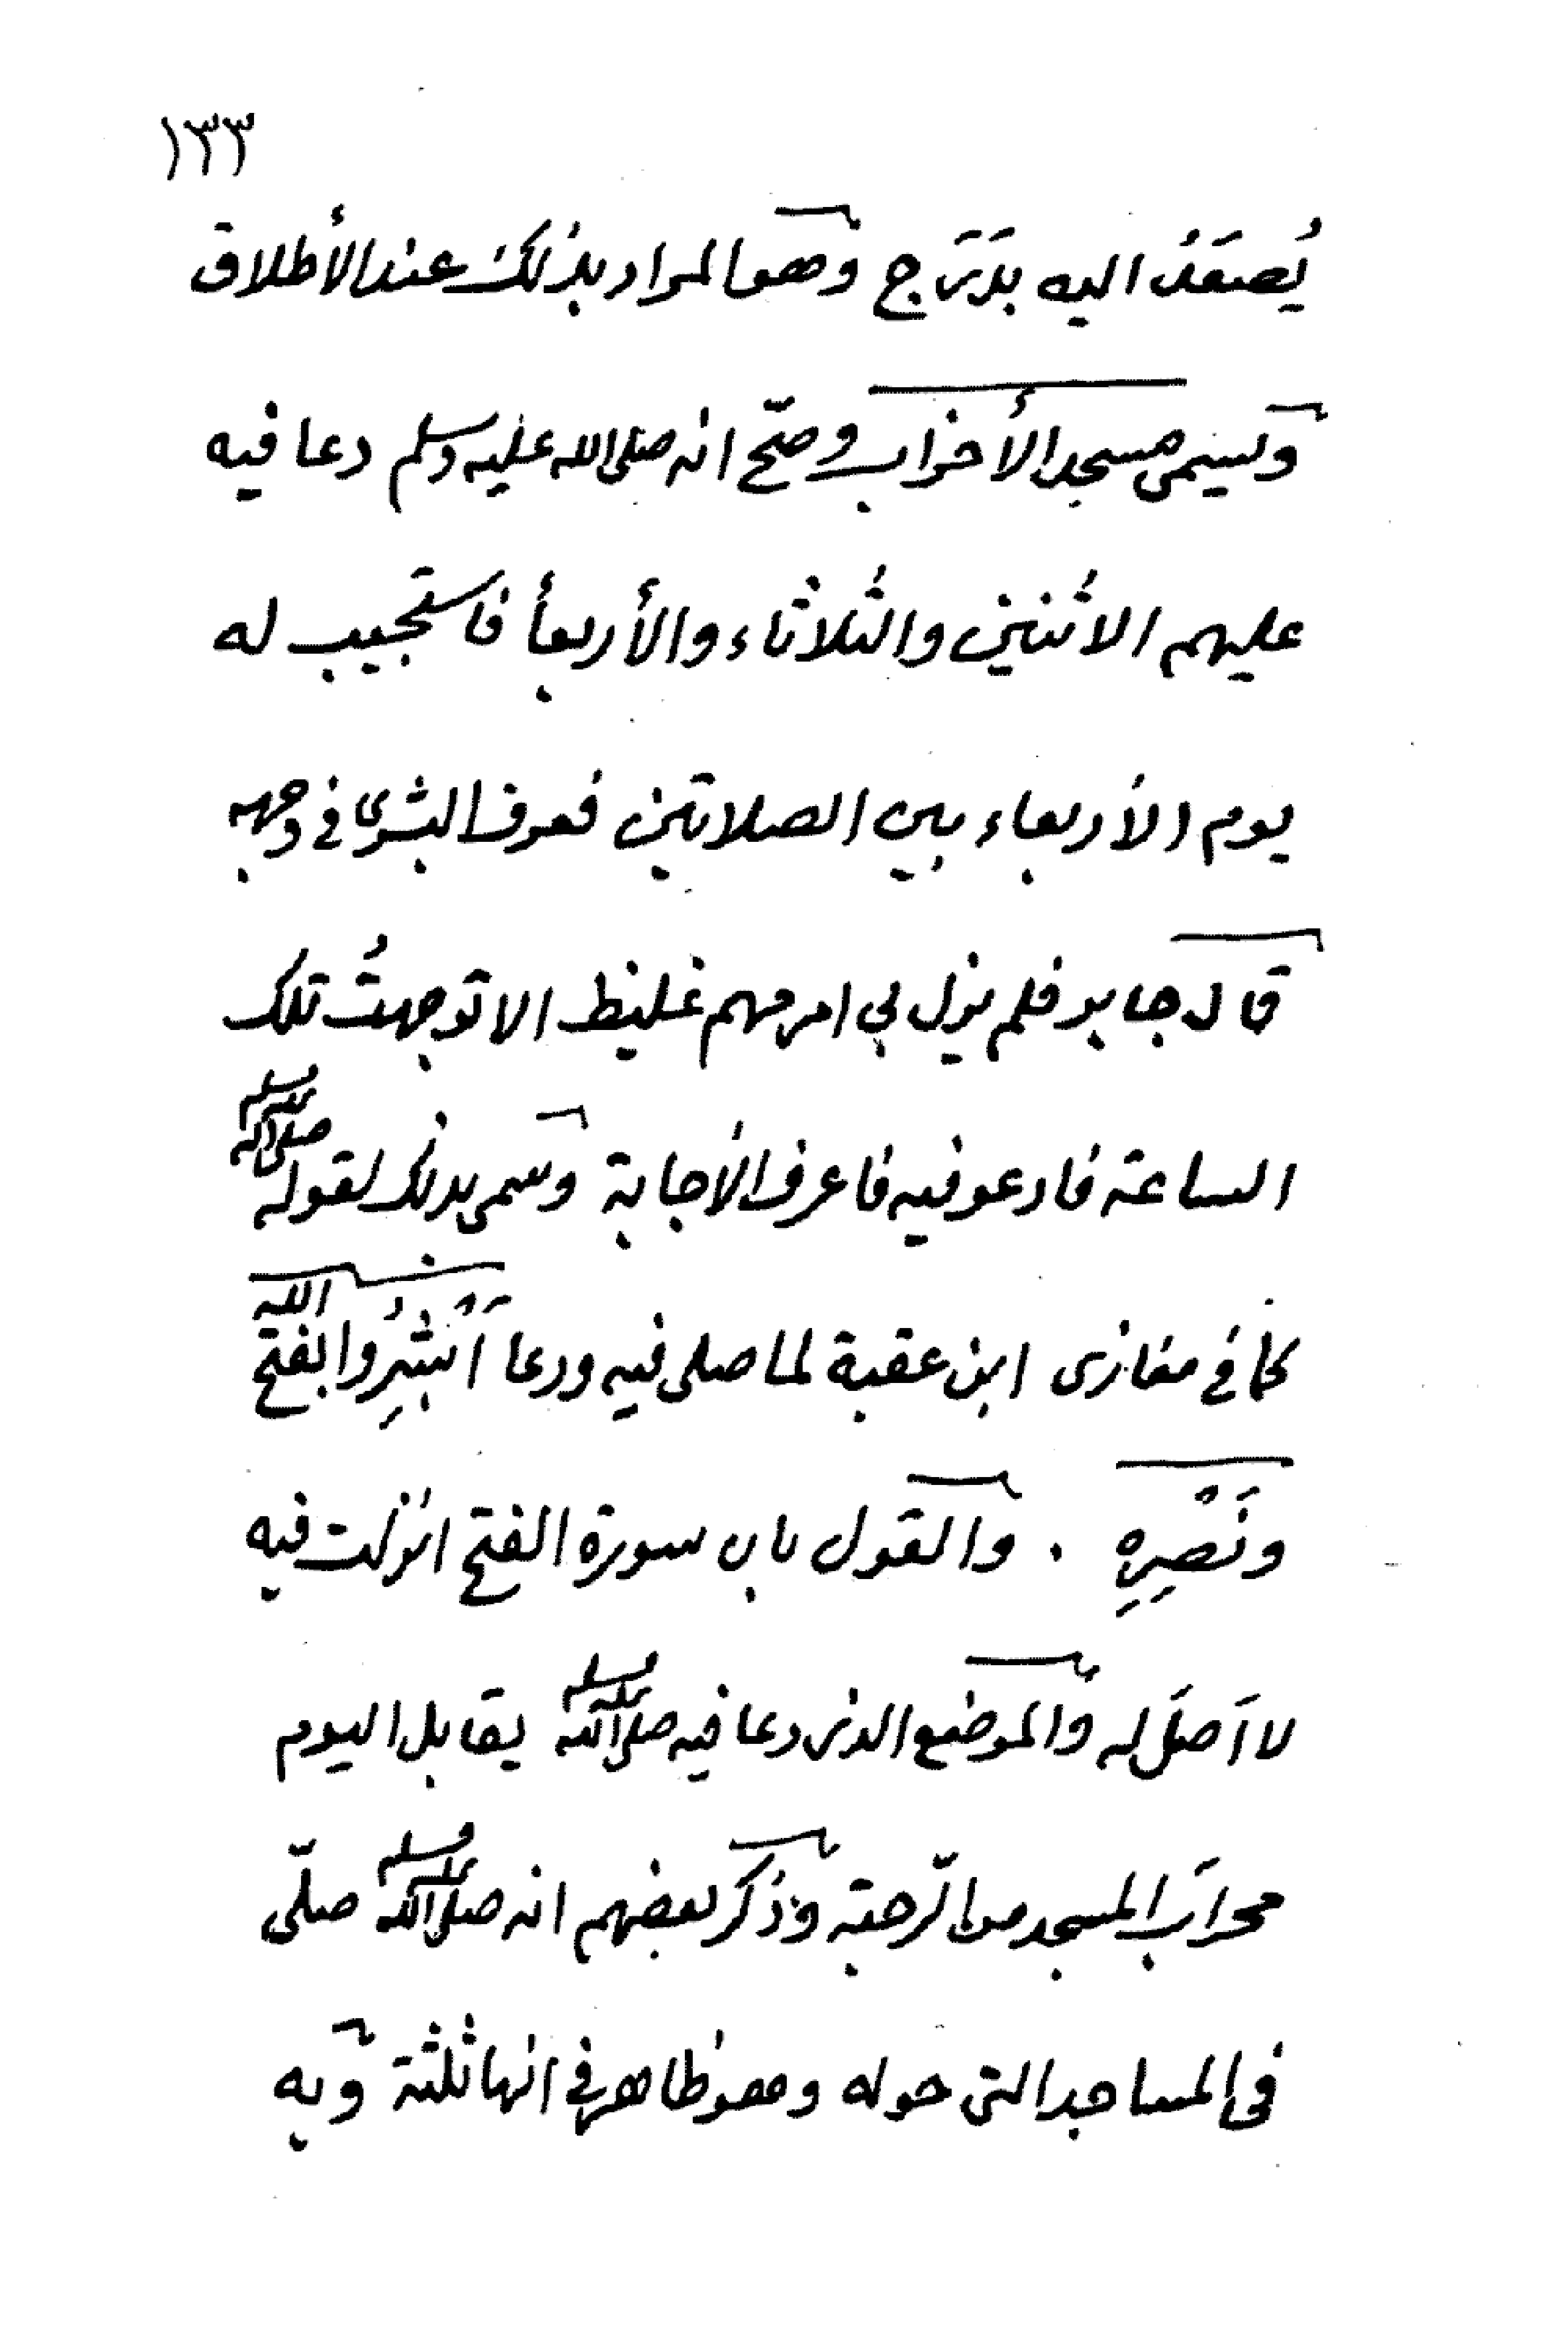 ١٣٣
يُصعَدُ اليه بدَرَج وهو المراد بذلك عند الأطلاق
ويسمى مسجد الأحزاب وصحّ انه صلى الله عليه وسلم دعا فيه
عليهم الاثنين والثلاثاء والأربعأ فاستجيب له
يوم الأربعاء بين الصلاتين فعرف البشرى في وجهه
قال جابر فلم ينزل بي امر مهم غليظ الا توجهتُ تلك
الساعة فادعو فيه فاعرف الأجابة وسمى بذلك لقوله صلى الله عليه وسلم
كما في مغازى ابن عقبة لما صلى فيه ودعا أَبْشِرُوا بفتح الله
ونَصْرِهِ . والقول بان سورة الفتح انزلت فيه
لا اَصلَ له والموضع الذى دعا فيه صلى الله عليه وسلم يقابل اليوم
محراب المسجد من الرّحبة وذكر بعضهم انه صلى الله عليه وسلم صلّى
في المساجد التى حوله وهو ظاهر في انها ثلثة وبه